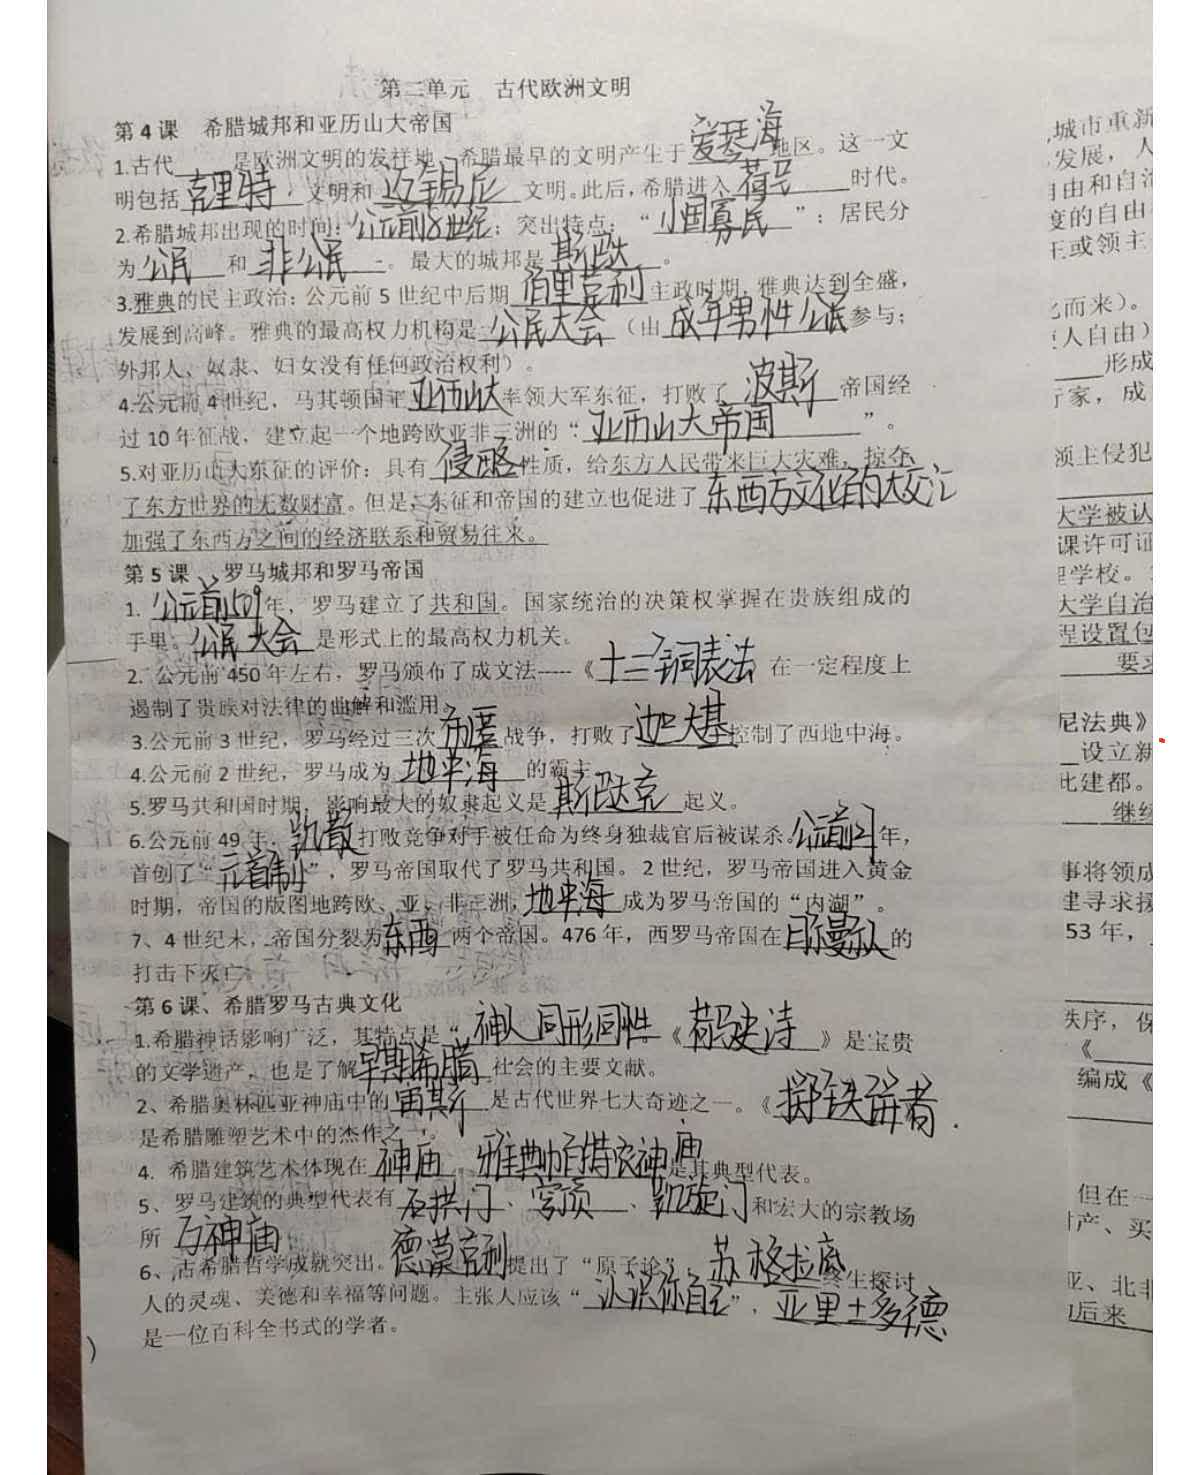 第二单元 古代欧洲文明
第4课 希腊城邦和亚历山大帝国
1.古代____是欧洲文明的发祥地。希腊最早的文明产生于爱琴海地区。这一文
明包括克里特文明和迈锡尼文明。此后,希腊进入荷马时代。
2.希腊城邦出现的时间:公元前8世纪;突出特点:“小国寡民”;居民分
为公民和非公民。最大的城邦是斯巴达。
3.雅典的民主政治:公元前5世纪中后期伯里克利主政时期,雅典达到全盛,
发展到高峰。雅典的最高权力机构是公民大会(由成年男性公民参与;
外邦人、奴隶、妇女没有任何政治权利)。
4.公元前4世纪,马其顿国王亚历山大率领大军东征,打败了波斯帝国经
过10年征战,建立起一个地跨欧亚非三洲的“亚历山大帝国”。
5.对亚历山大东征的评价:具有侵略性质,给东方人民带来巨大灾难,掠夺
了东方世界的无数财富。但是,东征和帝国的建立也促进了东西方文化的大交汇
加强了东西方之间的经济联系和贸易往来。
第5课、罗马城邦和罗马帝国
1.公元前509年,罗马建立了共和国。国家统治的决策权掌握在贵族组成的
手里。公民大会是形式上的最高权力机关。
2.公元前450年左右,罗马颁布了成文法-----《十二铜表法 在一定程度上
遏制了贵族对法律的曲解和滥用。
3.公元前3世纪,罗马经过三次布匿战争,打败了迦太基控制了西地中海。
4.公元前2世纪,罗马成为地中海的霸主
5.罗马共和国时期,影响最大的奴隶起义是斯巴达克起义。
6.公元前49年,凯撒打败竞争对手被任命为终身独裁官后被谋杀。公元前27年,
首创了“元首制”,罗马帝国取代了罗马共和国。2世纪,罗马帝国进入黄金
时期,帝国的版图地跨欧、亚、非三洲,地中海成为罗马帝国的“内湖”。
7、4世纪末,帝国分裂为东西两个帝国。476年,西罗马帝国在日耳曼人的
打击下灭亡。
第6课、希腊罗马古典文化
1.希腊神话影响广泛,其特点是“神人同形同性《荷马史诗》是宝贵
的文学遗产,也是了解早期希腊社会的主要文献。
2、希腊奥林匹亚神庙中的宙斯是古代世界七大奇迹之一。《掷铁饼者
是希腊雕塑艺术中的杰作之一。
4.希腊建筑艺术体现在神庙,雅典帕特农神庙是其典型代表。
5、罗马建筑的典型代表有石拱门、穹顶、凯旋门和宏大的宗教场
所万神庙
6、古希腊哲学成就突出。德谟克利提出了“原子论”,苏格拉底终生探讨
人的灵魂、美德和幸福等问题。主张人应该“认识你自己”,亚里士多德
是一位百科全书式的学者。
,城市重新
发展,人
自由和自治
度的自由
王或领主
而来)。
人自由)
形成
家,成
领主侵犯
大学被认
课许可证
学校。
大学自治
程设置包
要求
尼法典》
设立新
此建都。
继续
事将领成
建寻求援
53年,
秩序,保
《
编成《
但在一
产、买
亚、北非
后来